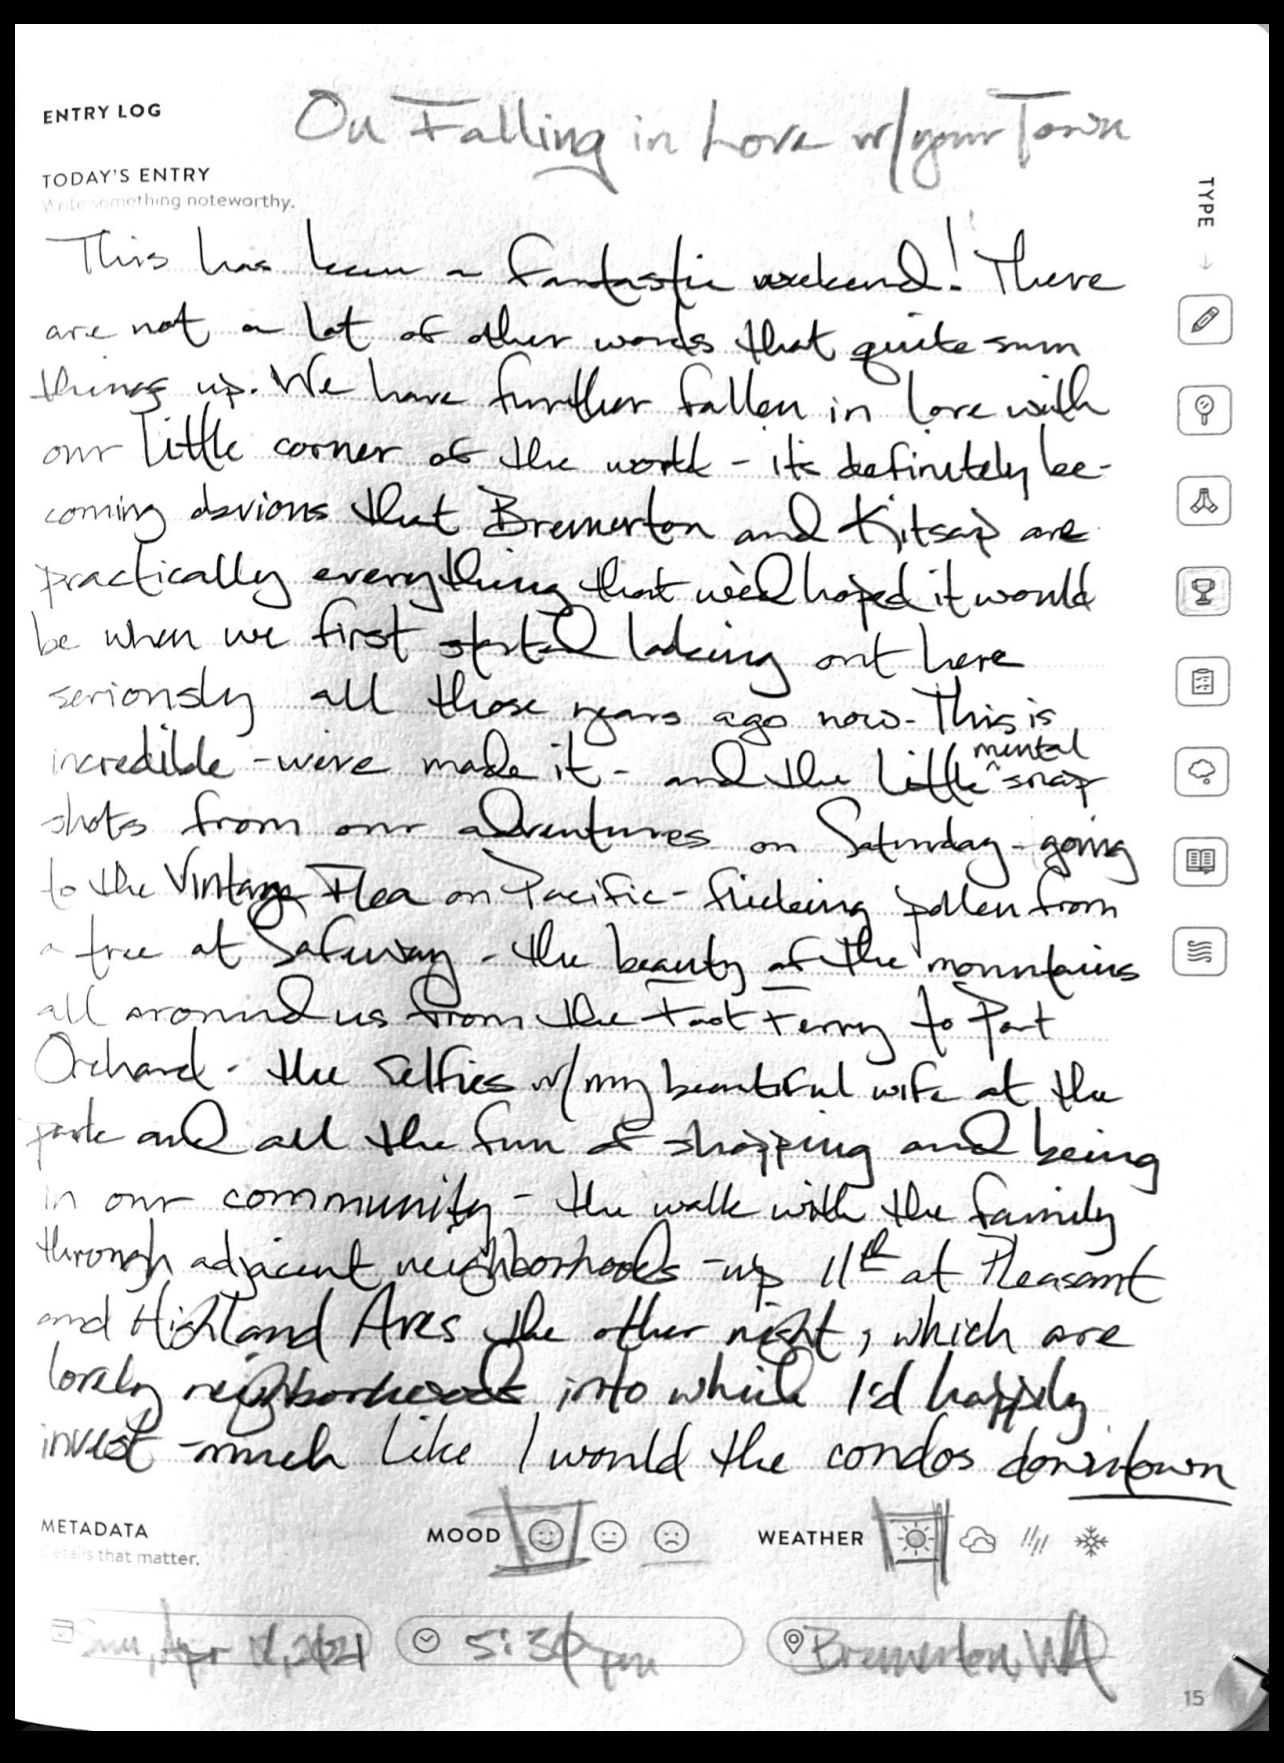 ENTRY LOG
On Falling in Love w/your Town
TODAY'S ENTRY
Write something noteworthy.
TYPE
This has been a fantastic weekend! There
are not a lot of other words that quite sum
things up. We have further fallen in love with
our little corner of the world - it's definitely be-
coming obvious that Bremerton and Kitsap are
practically everything that we'd hoped it would
be when we first started looking out here
seriously all those years ago now. This is
incredible - we've made it - and the little ^mental snap
shots from our adventures on Saturday - going
to the Vintage Flea on Pacific - flicking pollen from
a tree at Safeway - the beauty of the mountains
all around us from the Foot Ferry to Port
Orchard - the selfies w/my beautiful wife at the
park and all the fun of shopping and being
in our community - the walk with the family
through adjacent neighborhoods - up 11th at Pleasant
and Highland Aves the other night, which are
lovely neighborhoods into which I'd happily
invest - much like I would the condos downtown
METADATA
Details that matter.
MOOD
WEATHER
Sun, Apr 18, 2021
5:30pm
Bremerton, WA
15